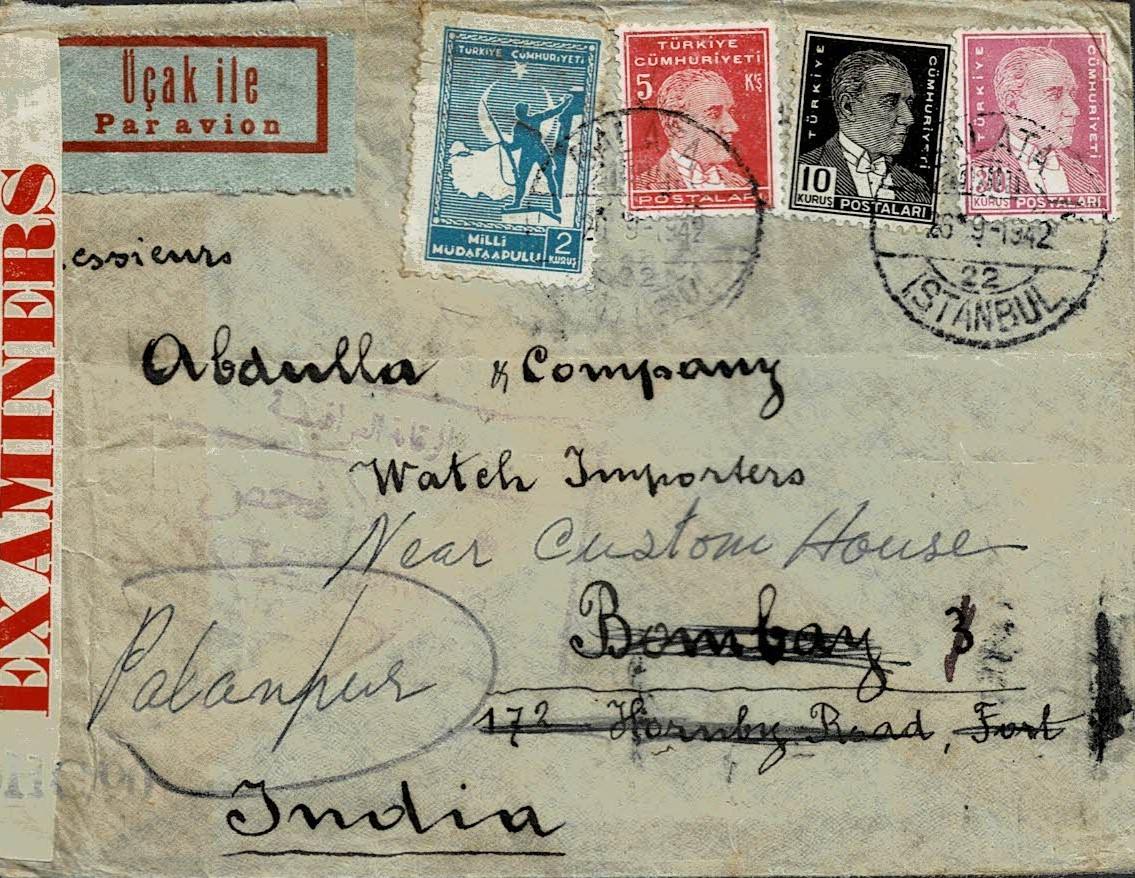 Üçak ile
Par avion
EXAMINERS
TÜRKİYE CÜMHURİYETİ
MİLLİ
MÜDAFAAPULU
2
KURUŞ
TÜRKİYE
CÜMHURİYETİ
5 Kş
POSTALARI
TÜRKİYE CÜMHURİYETİ
10
KURUŞ POSTALARI
TÜRKİYE CÜMHURİYETİ
KURUŞ POSTALARI
26 9-1942
26 9-1942
22
İSTANBUL
essieurs
Abdulla & Company
Watch Importers
Near Custom House
Bombay
172 Hornby Road, Fort
Palanpur
India